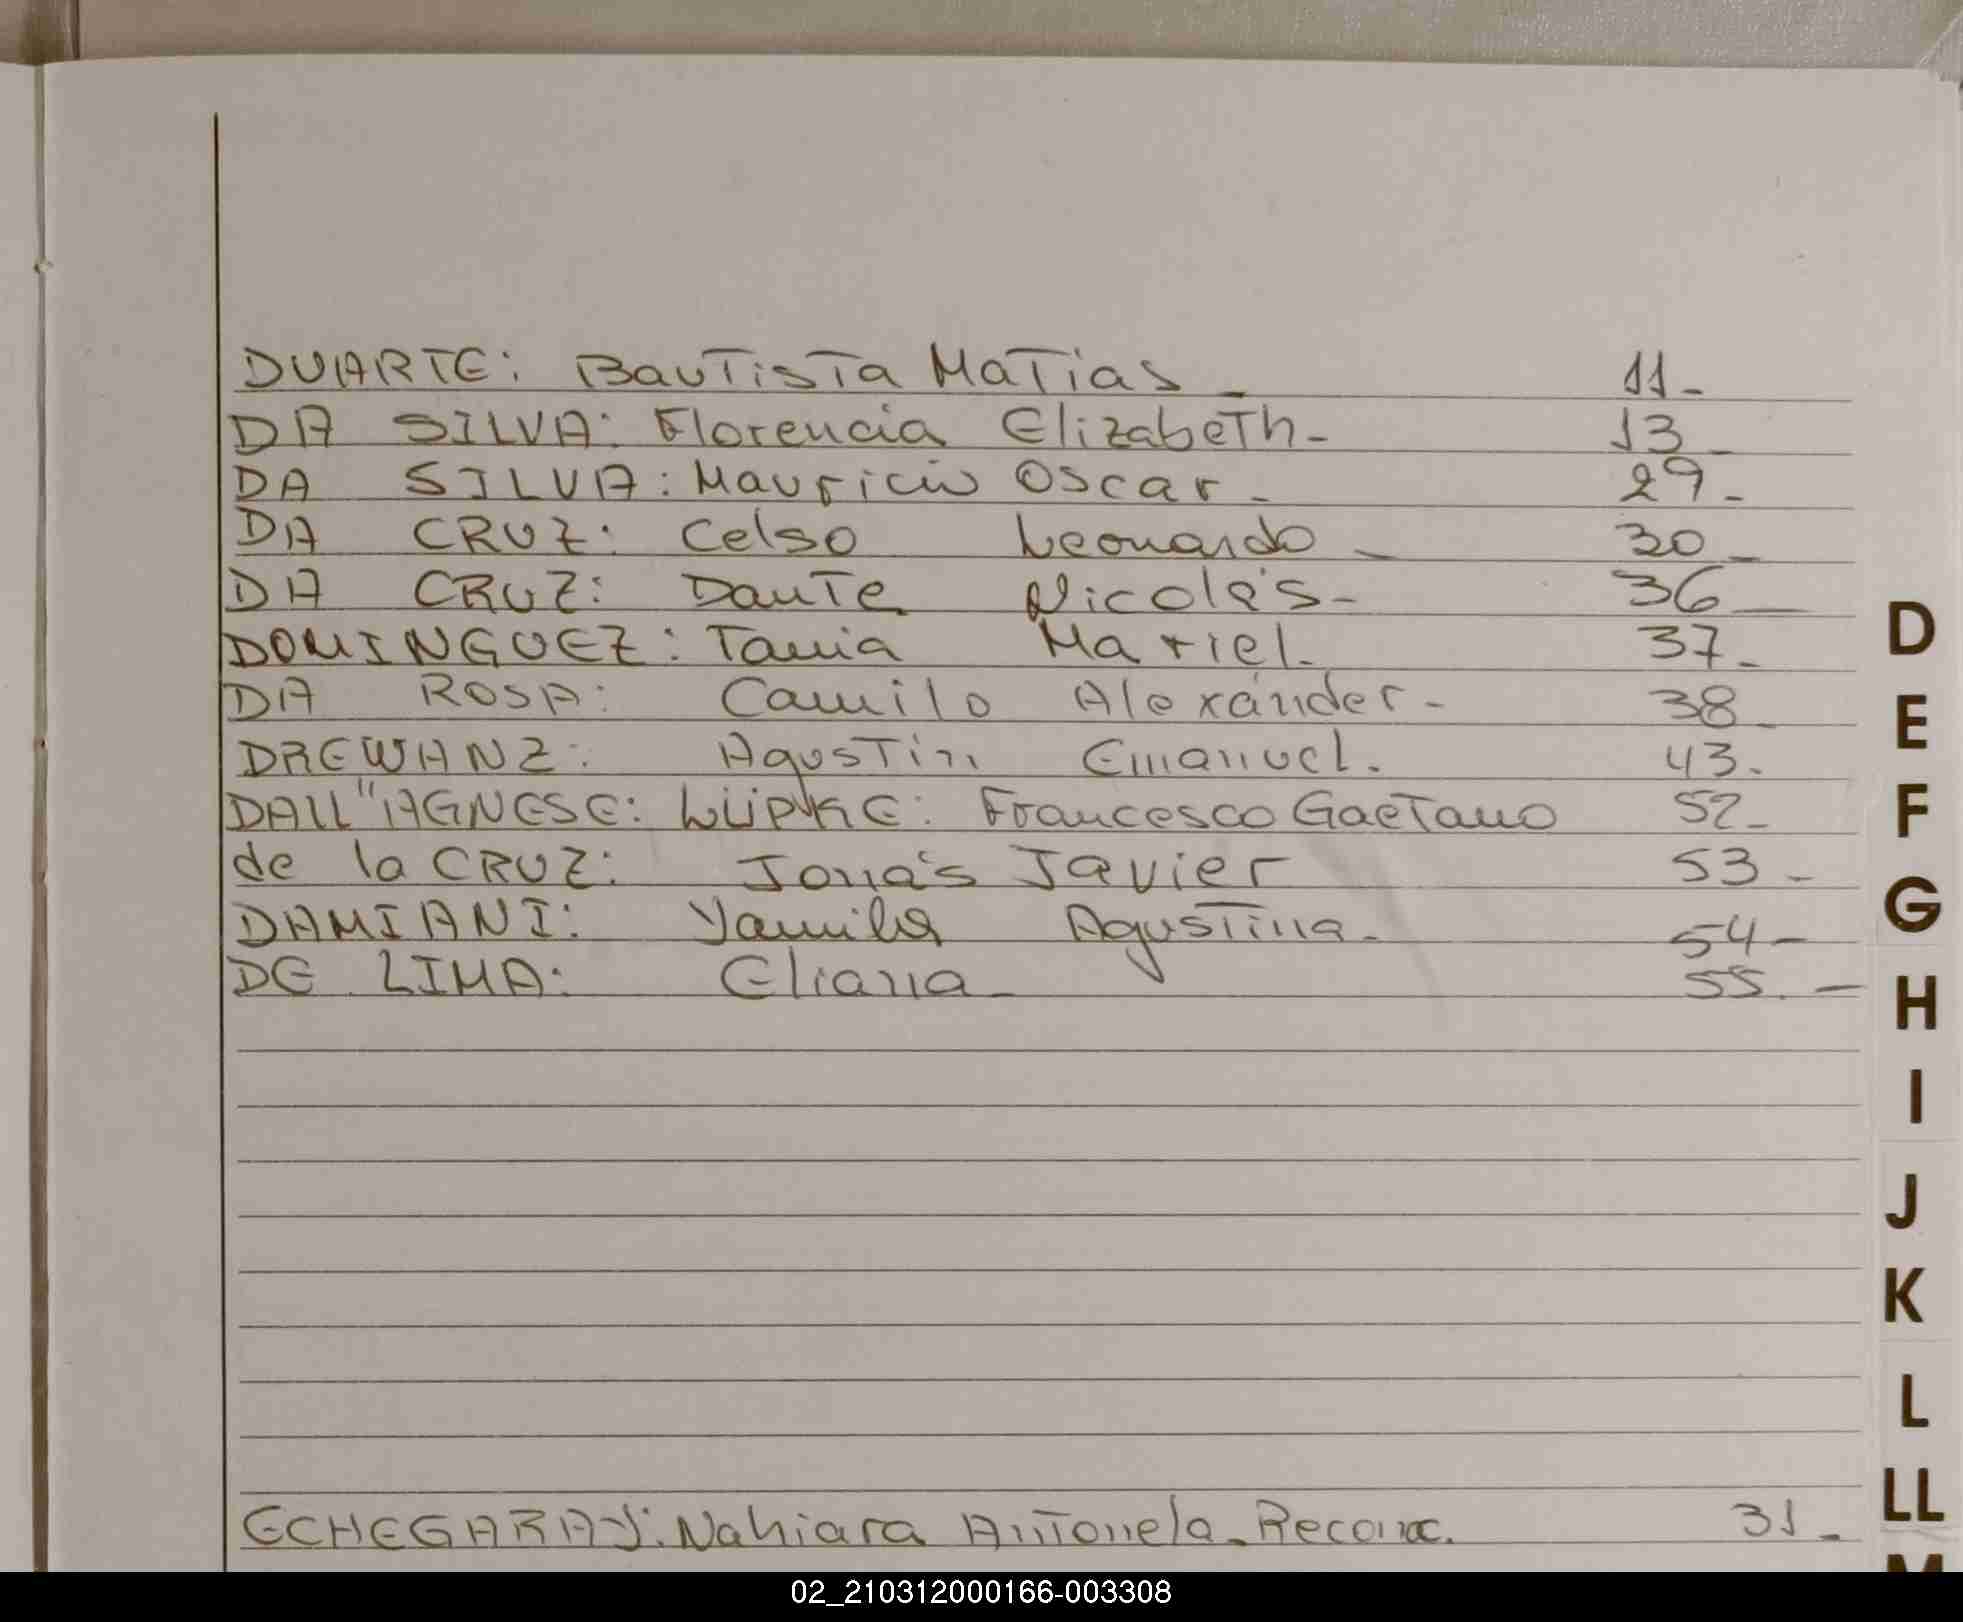 DUARTE: Bautista Matias - 11-
DA SILVA: Florencia Elizabeth- 13-
DA SILVA: Mauricio Oscar- 29-
DA CRUZ: Celso Leonardo- 30-
DA CRUZ: Dante Nicolás- 36-
DOMINGUEZ: Tania Mariel. 37-
DA ROSA: Camilo Alexánder- 38-
DREWANZ: Agustin Emanuel. 43-
DALL"AGNESE: LÜPKE: Francesco Gaetano 52-
de la CRUZ: Jonás Javier 53-
DAMIANI: Yamila Agustina- 54-
DE LIMA: Eliana- 55.-
ECHEGARAY: Nahiara Antonela. Reconoc. 31-
D
E
F
G
H
I
J
K
L
LL
M
02_210312000166-003308